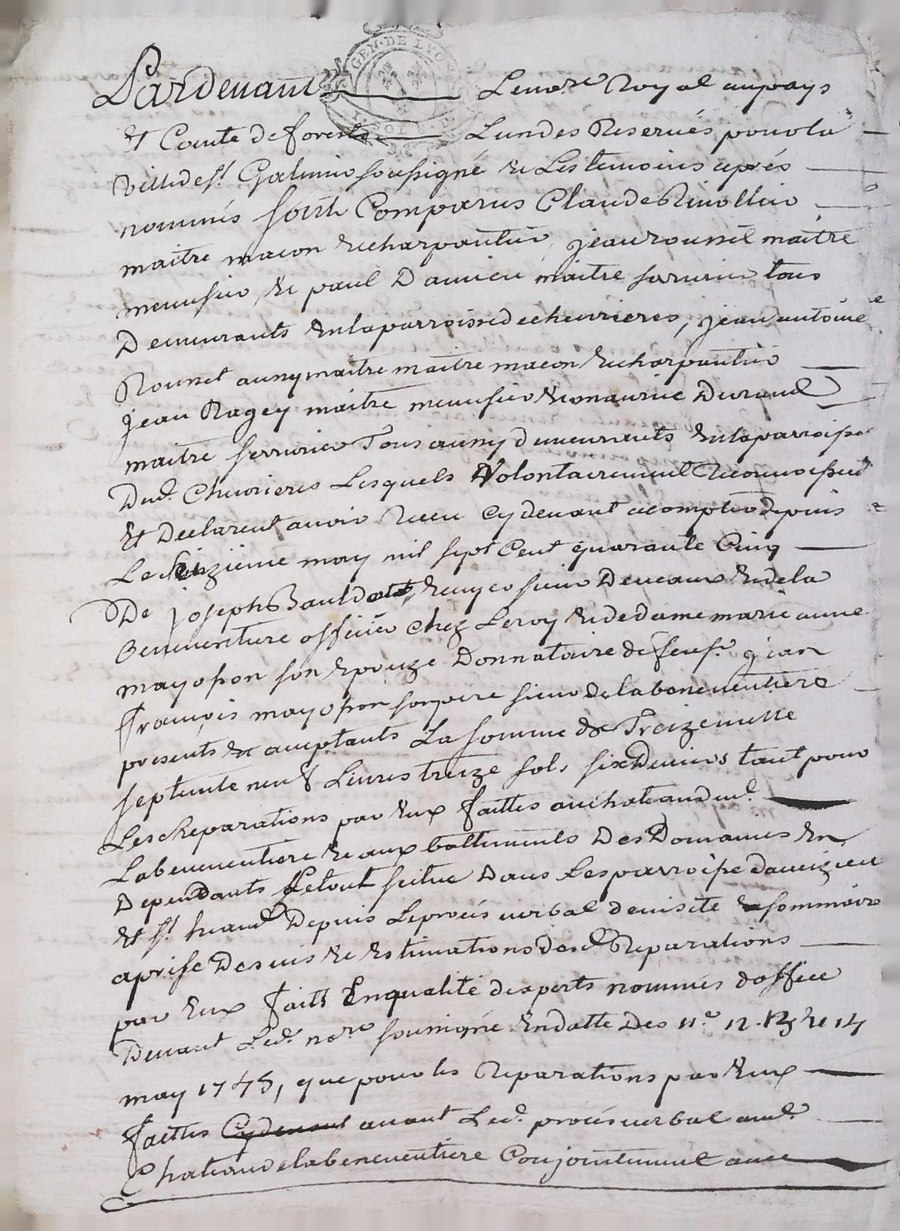 GEN. DE LYON
Pardevant Le nore Royal au pays
et Comté de forests Lun des Reservés pour la
ville de st. Galmier soussigné et Les temoins après
nommés sont Comparus Claude
maitre macon et charpantier, jean rounel maitre
menusier, et paul Damieu maitre serrurier tous
Demeurants en la parroisse de chevrieres, jean antoine
Rounel aussy maitre maitre macon et charpantier
jean Ragey maitre menusier et Durand
maitre serrurier Tous aussy demeurants en la parroisse
Dud. Chevrieres Lesquels Volontairement Reconnoissent
Et Declarent avoir Receu cydevant acomptes depuis
Le may mil sept Cent quarante Cinq
De joseph Bauldot ecuyer sieur Deveaux et de la
Beneventiere officier chez Le roy et de dame marie anne
mayosson son epouze Donnataire de feu sr. jean
François mayosson son pere sieur de la beneventiere
presents et aceptants La somme de Treize mille
septente neuf Livres treize sols six Deniers tant pour
Les Reparations par Eux faittes au chateau dud.
La beneventiere et aux battiments Des Domaines En
Dependants Le tout situé Dans Les parroisse daveizieu
Et st. Depuis Le procés verbal de visitte et sommaire
aprise Devis et Estimations desd. Reparations
par Eux faitt En qualité dexperts nommés doffice
Devant Led. nore soussigné En datte Des 11e. 12. 13 et 14
may 1745, que pour les Reparations par Eux
faittes Cydevant avant Led. procés verbal aud.
Chateau de la beneventiere Conjointement avec